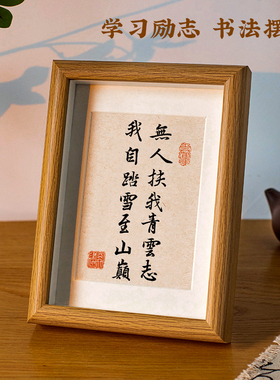 学习励志 书法摆
無人扶我青雲志
我自踏雪至山巔